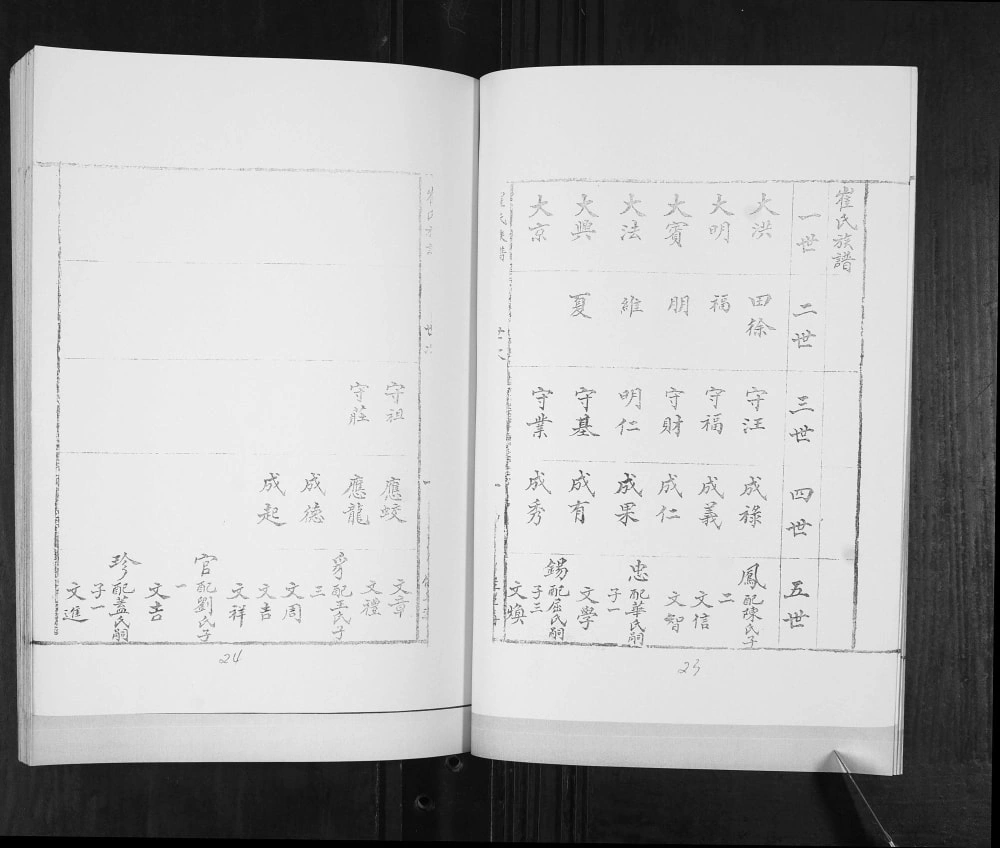 崔氏族譜
一世
二世
三世
四世
五世
大洪
大明
大賓
大法
大興
大京
田徐
福
朋
維
夏
守汪
守福
守財
明仁
守基
守業
成祿
成義
成仁
成果
成有
成秀
鳳配陳氏子
二
文信
文智
忠配華氏嗣
子一
文學
錫配屈氏嗣
子三
文煥
23
守祖
守莊
應蛟
應龍
成德
成起
文章
文禮
配王氏子
三
文周
文吉
文祥
官配劉氏子
一
文吉
珍配蓋氏嗣
子一
文進
24